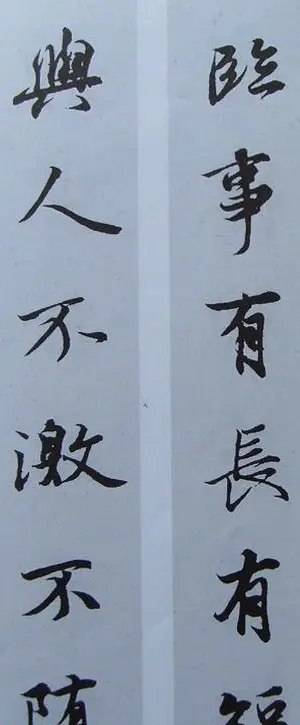 臨事有長有短
與人不激不随